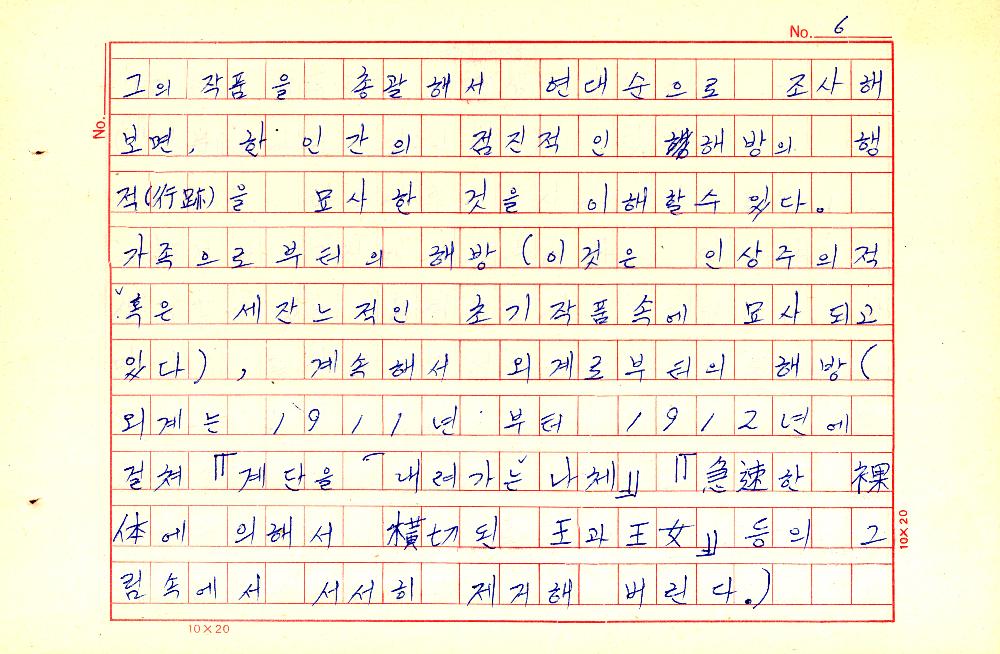 No. 6
No.
그의 작품을 총괄해서 연대순으로 조사해
보면, 한 인간의 점진적인 해방의 행
적(行跡)을 묘사한 것을 이해할수 있다.
가족으로부터의 해방(이것은 인상주의적
혹은 세잔느적인 초기작품속에 묘사되고
있다), 계속해서 외계로부터의 해방(
외계는 1911년 부터 1912년에
걸쳐 『계단을 내려가는 나체』 『急速한 裸
体에 의해서 橫切된 王과王女』등의 그
림속에서 서서히 제거해 버린다.)
10×20
10×20